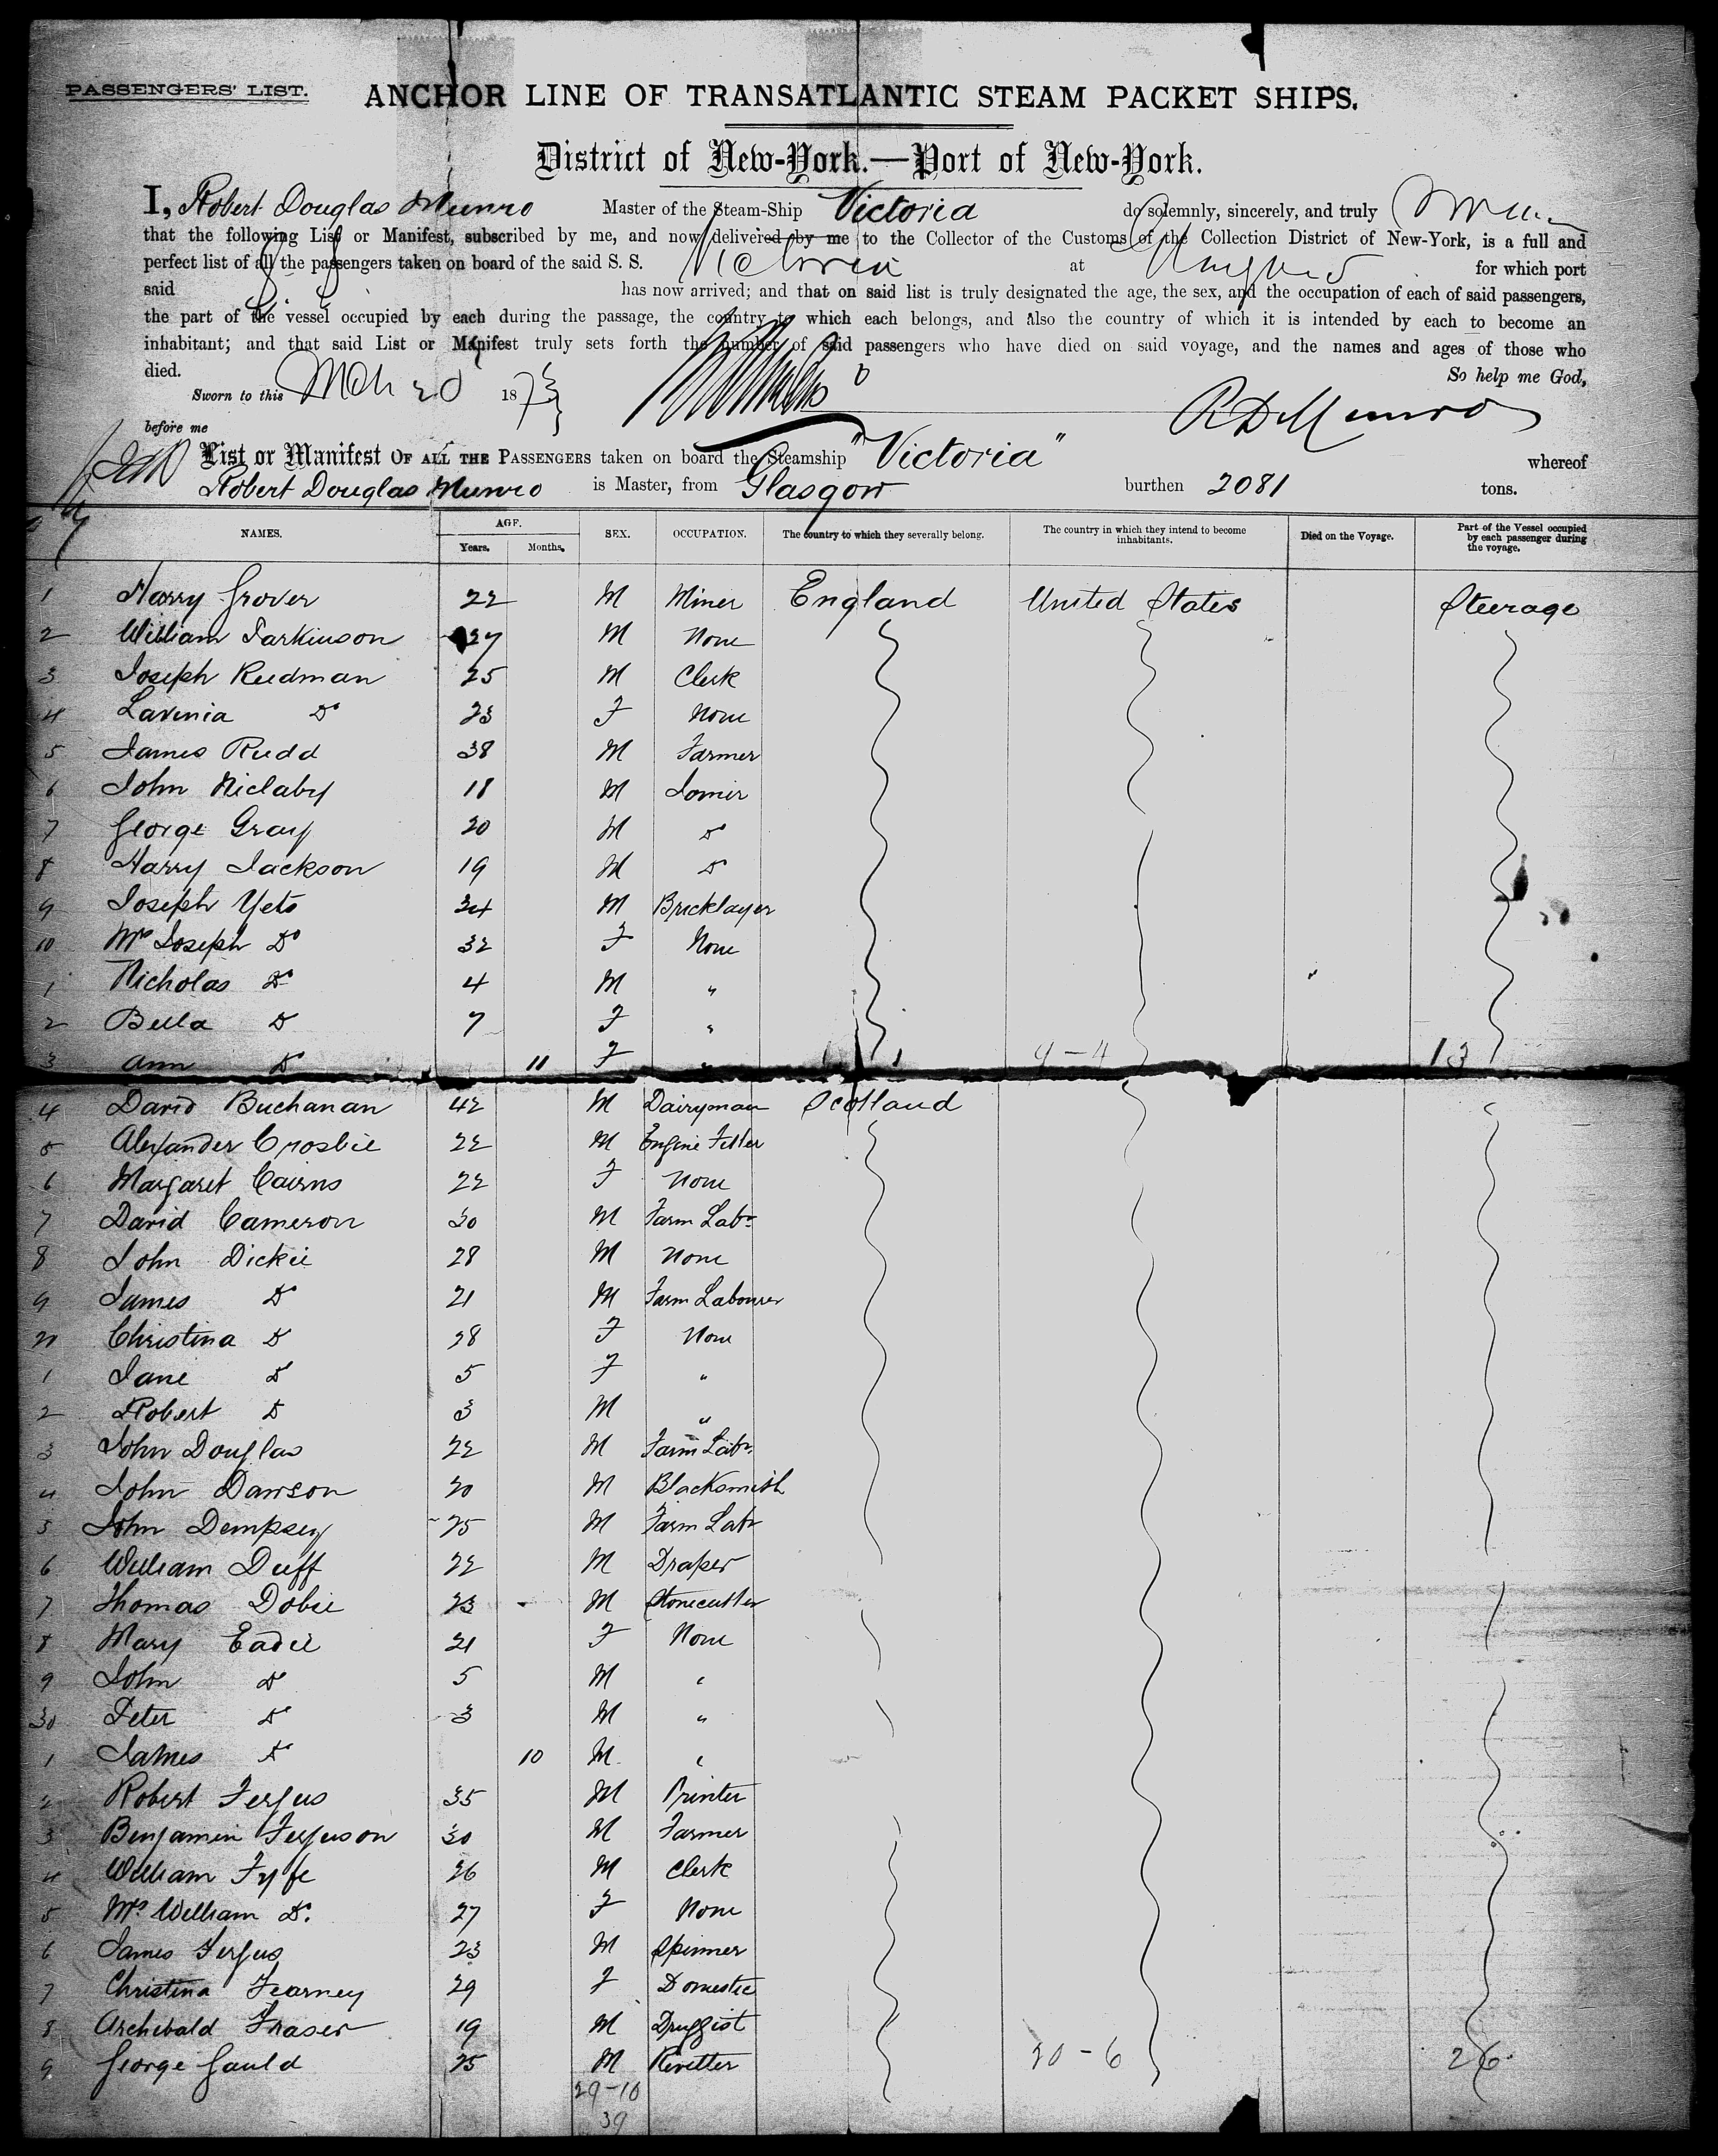 PASSENGERS' LIST.
ANCHOR LINE OF TRANSATLANTIC STEAM PACKET SHIPS.
District of New-York.—Port of New-York.
I, Robert Douglas Munro Master of the Steam-Ship Victoria do solemnly, sincerely, and truly
that the following List or Manifest, subscribed by me, and now delivered by me to the Collector of the Customs of the Collection District of New-York, is a full and
perfect list of all the passengers taken on board of the said S. S. Victoria at for which port
said has now arrived; and that on said list is truly designated the age, the sex, and the occupation of each of said passengers,
the part of the vessel occupied by each during the passage, the country to which each belongs, and also the country of which it is intended by each to become an
inhabitant; and that said List or Manifest truly sets forth the number of said passengers who have died on said voyage, and the names and ages of those who
died. So help me God,
Sworn to this Mch 20 1873
before me R D Munro
List or Manifest OF ALL THE PASSENGERS taken on board the Steamship "Victoria" whereof
Robert Douglas Munro is Master, from Glasgow burthen 2081 tons.
NAMES. AGE. Years. Months. SEX. OCCUPATION. The country to which they severally belong. The country in which they intend to become inhabitants. Died on the Voyage. Part of the Vessel occupied by each passenger during the voyage.
1 Harry Grover 22 M Miner England United States Steerage
2 William Parkinson 27 M None
3 Joseph Reedman 25 M Clerk
4 Lavinia Do 23 F None
5 James Rudd 38 M Farmer
6 John Niclaby 18 M Joiner
7 George Gray 20 M Do
8 Harry Jackson 19 M Do
9 Joseph Yets 34 M Bricklayer
10 Mrs Joseph Do 32 F None
1 Nicholas Do 4 M "
2 Bella Do 7 F "
3 Ann Do 11 F " 9-4 13
4 David Buchanan 42 M Dairyman Scotland
5 Alexander Crosbie 22 M Engine Fitter
6 Margaret Cairns 22 F None
7 David Cameron 30 M Farm Labr
8 John Dickie 28 M None
9 James Do 21 M Farm Labourer
20 Christina Do 28 F None
1 Jane Do 5 F "
2 Robert Do 3 M "
3 John Douglas 22 M Farm Labr
4 John Dawson 20 M Blacksmith
5 John Dempsey 25 M Farm Labr
6 William Duff 22 M Draper
7 Thomas Dobie 23 M Stonecutter
8 Mary Eadie 21 F None
9 John Do 5 M "
30 Peter Do 3 M "
1 James Do 10 M "
2 Robert Fergus 35 M Printer
3 Benjamin Ferguson 30 M Farmer
4 William Fyfe 26 M Clerk
5 Mrs William Do. 27 F None
6 James Fergus 23 M Spinner
7 Christina Fearney 29 F Domestic
8 Archibald Fraser 19 M Druggist
9 George Gauld 25 M Rivetter 20-6 26
29-10
39